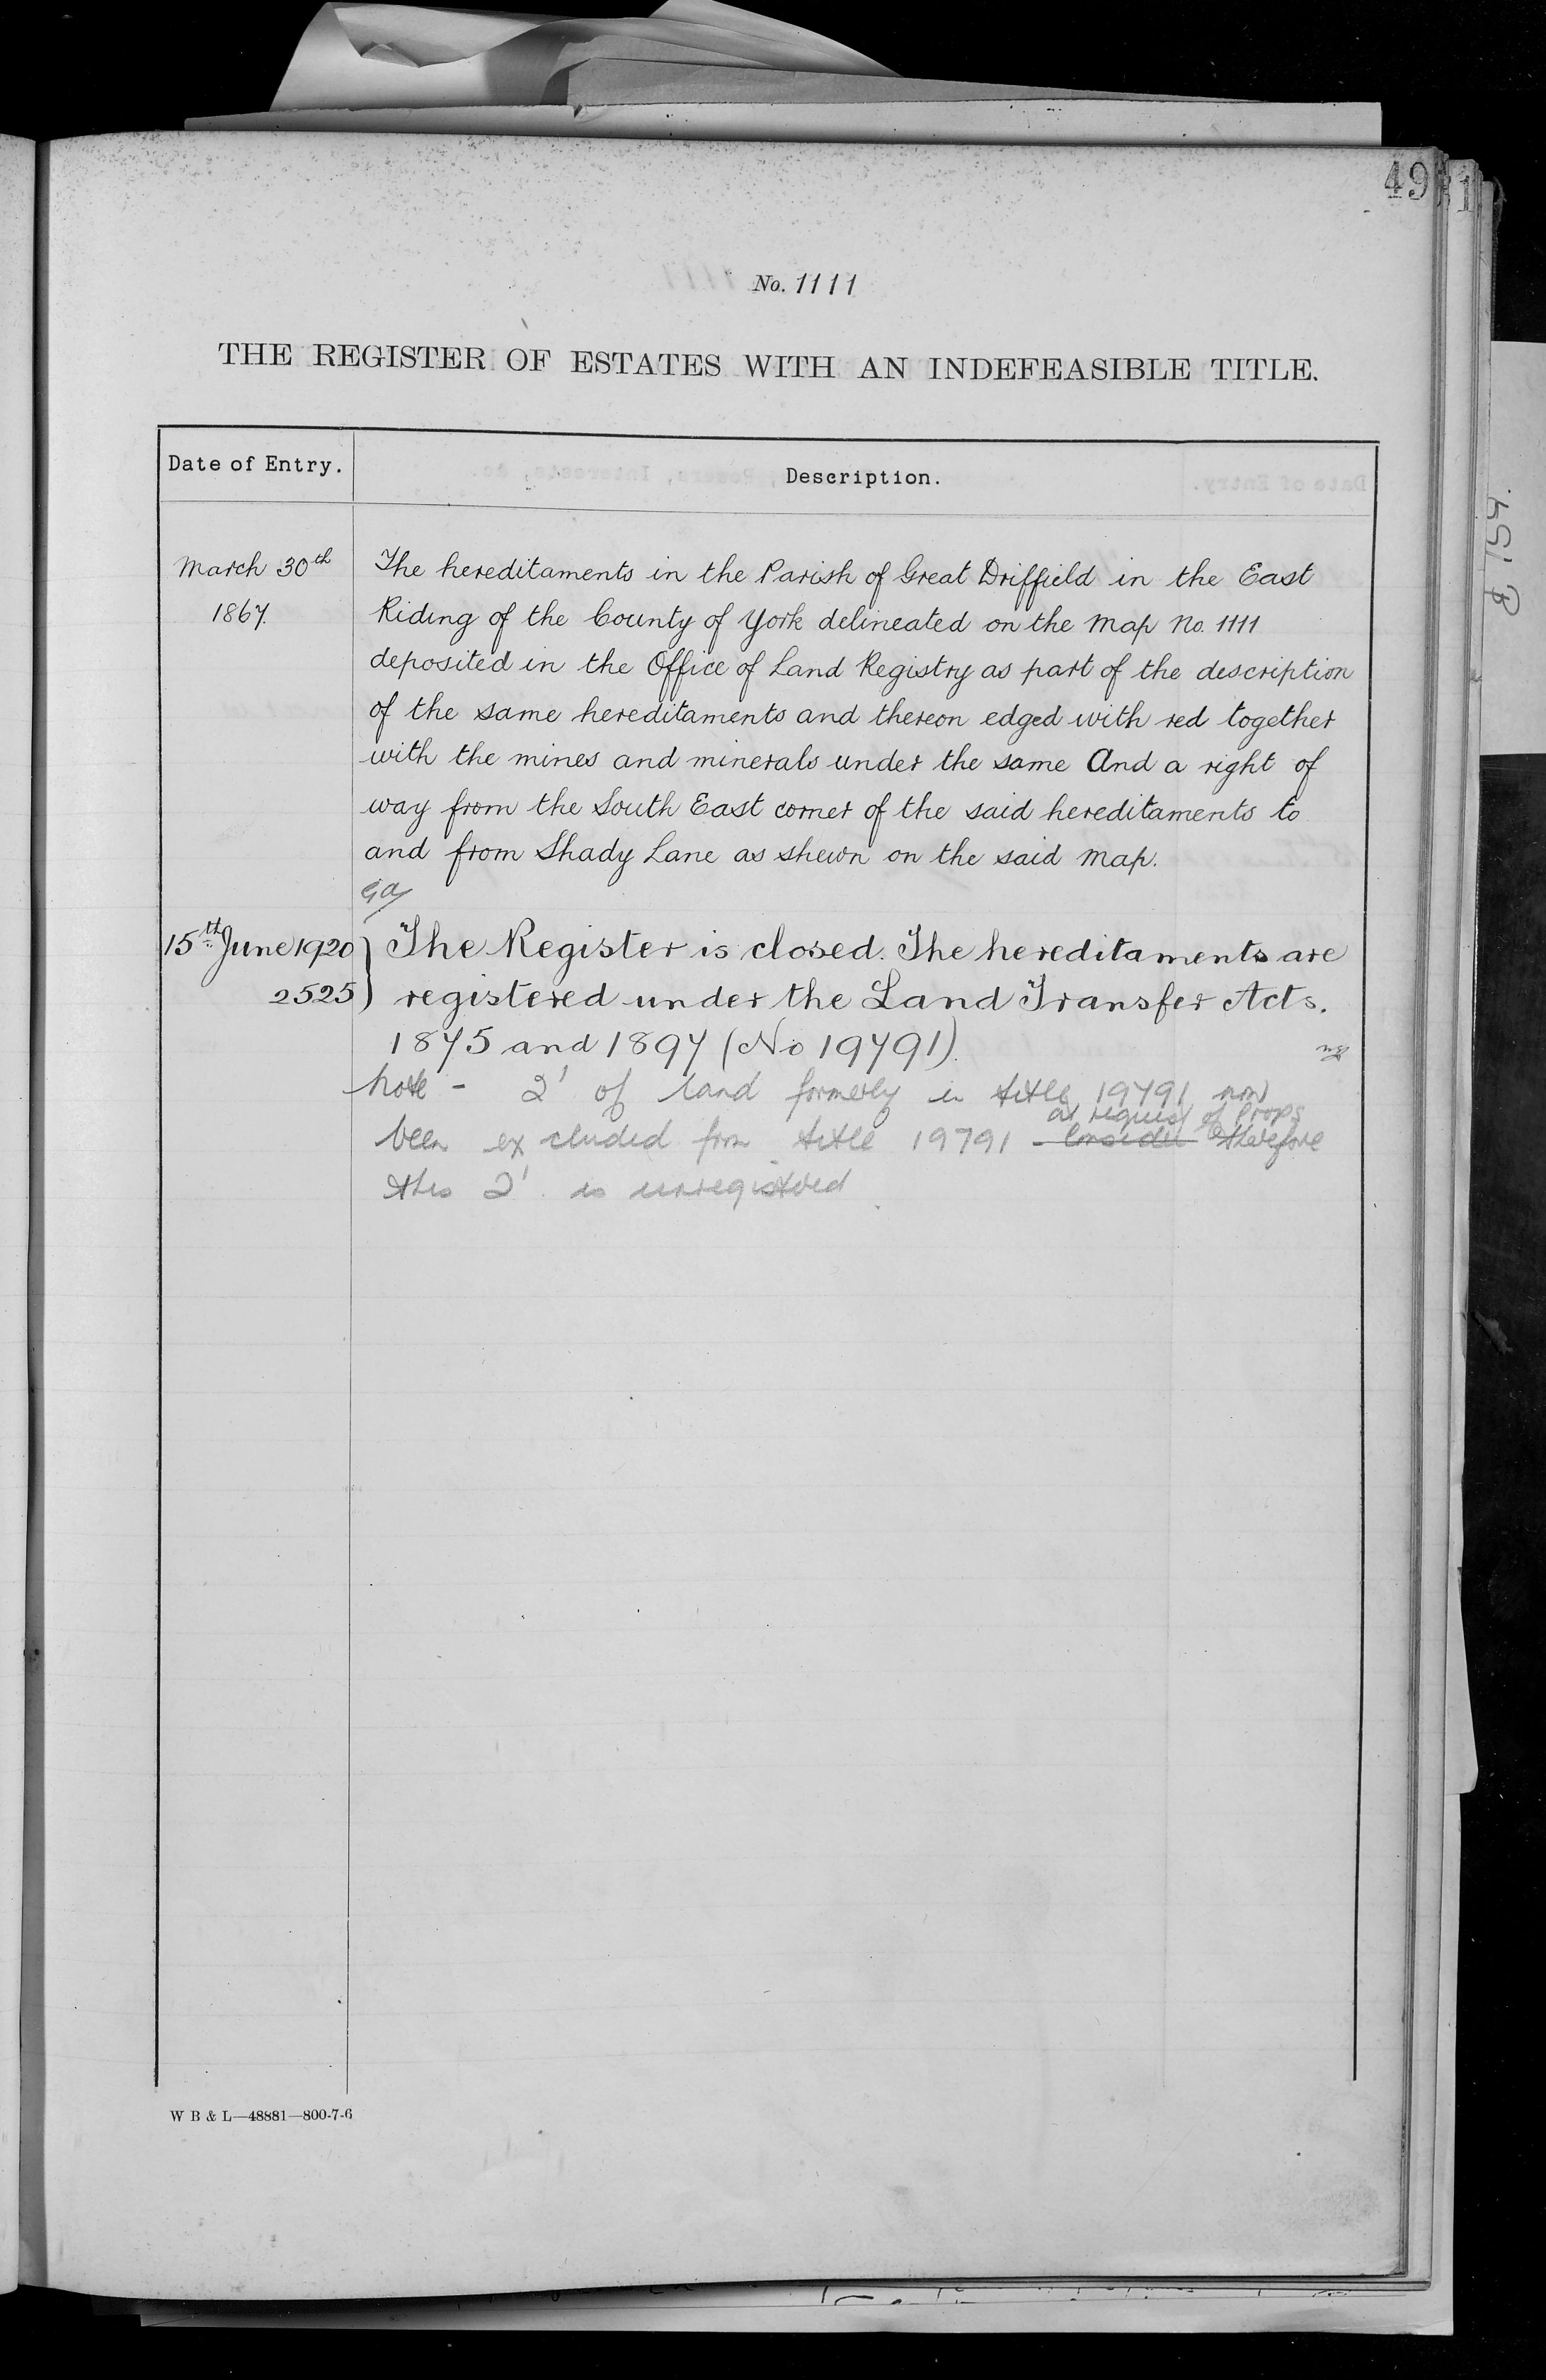 49
1
No. 1111
THE REGISTER OF ESTATES WITH AN INDEFEASIBLE TITLE.
Date of Entry.
Description.
March 30th
1867.
The hereditaments in the Parish of Great Driffield in the East
Riding of the County of York delineated on the Map No. 1111
deposited in the Office of Land Registry as part of the description
of the same hereditaments and thereon edged with red together
with the mines and minerals under the same And a right of
way from the South East corner of the said hereditaments to
and from Shady Lane as shewn on the said Map.
15th June 1920
2525
The Register is closed. The hereditaments are
registered under the Land Transfer Acts.
1875 and 1897 (No 19791).
Note - 2' of land formerly in title 19791 now
at request of Props
been excluded from title 19791 - Consider therefore
this 2' is unregistered
W B & L—48881—800-7-6
P 154.